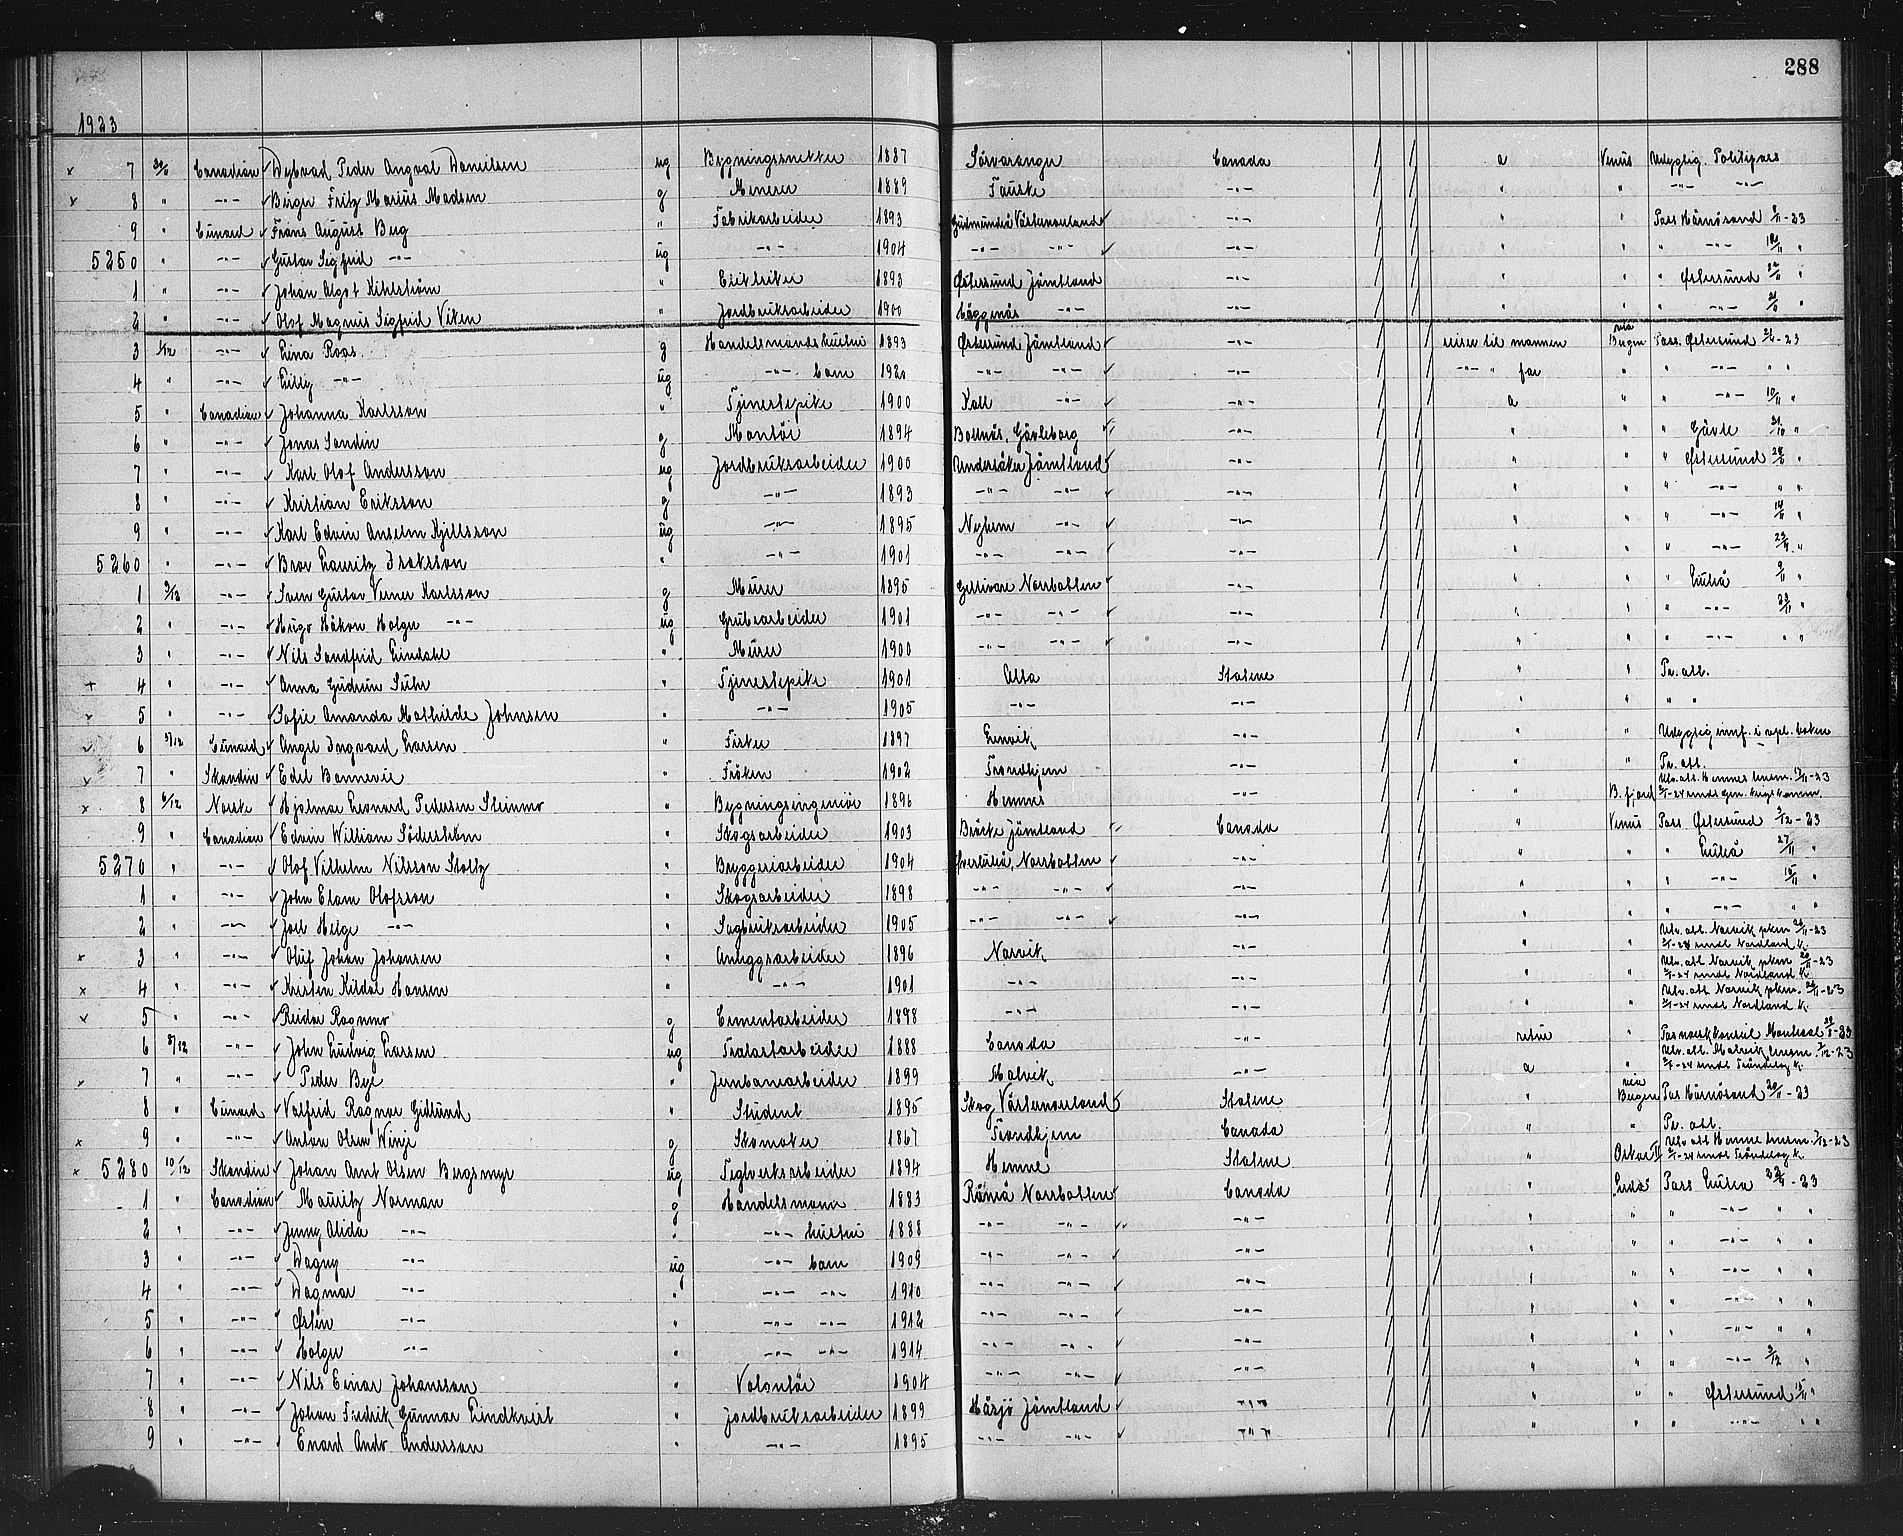 288
1923
7 30/11 Canadian Dybvad Peder Angval Danielsen ug Bygningssnekker 1887 Sörvaranger Canada a Venus Udygtig. Politipas
8 " -"- Berger Fritz Marius Madsen g Minerer 1889 Fauske -"- " " -"- -"-
9 " Cunard Frans August Berg " Fabrikarbeider 1893 Gudmundrå Västernorrland -"- " " Pass Härnösand 9/11-23
5250 " -"- Gustav Sigfrid -"- ug -"- 1904 -"- -"- -"- " " " -"- "
1 " -"- Johan Algot Kihlström " Elektriker 1893 Østersund Jämtland -"- " " " Østersund 22/11 "
2 " -"- Olof Magnus Sigfrid Viken " Jordbruksarbeider 1900 Häggenås -"- -"- " " " -"- "
3 1/12 -"- Lina Roos g Handelsmands hustru 1893 Østersund Jämtland -"- reiser til mannen via Bergen Pass. Østersund -23
4 " -"- Lilly -"- ug -"- barn 1920 -"- -"- -"- -"- " far " " -"- " "
5 " Canadian Johanna Karlsson " Tjenestepike 1900 Kall -"- -"- a " " -"- 10/11 "
6 " -"- Jonas Sandin g Montör 1894 Bollnäs, Gävleborg -"- " " " Gävle 31/10 "
7 " -"- Karl Olof Andersson ug Jordbruksarbeider 1900 Undersåker Jämtland -"- " " " Østersund "
8 " -"- Kristian Eriksson g -"- 1893 -"- -"- -"- " " " -"- " "
9 " -"- Karl Edvin Anselm Kjellsson ug -"- 1895 Nyhem -"- -"- " " " -"- 14/11 "
5260 " -"- Bror Lauritz Isaksson " -"- 1901 -"- -"- -"- " " " -"- "
1 3/12 -"- Sven Gustav Verner Karlsson g Murer 1895 Gellivare Norrbotten -"- " " " Luleå 9/11 "
2 " -"- Hugo Håkon Holger -"- ug Grubearbeider 1901 -"- -"- -"- " " " -"- 23/11 "
3 " -"- Nils Sandfrid Lindahl " Murer 1900 -"- -"- -"- " " " -"- " "
4 " -"- Anna Gudrun Suhr " Tjenestepike 1901 Alta Statene " " Pr. att.
5 " -"- Sofie Amanda Mathilde Johnsen " -"- 1905 -"- -"- " " " "
6 5/12 Cunard Angel Ingvard Larsen " Fisker 1897 Lenvik -"- " " Udygtig innf. i vpl. boken
7 " Skandin Edel Bonnevie " Fröken 1902 Trondhjem -"- " " Pr. att.
8 6/12 Norske Hjalmar Leonard Pedersen Steinmo " Bygningsingeniör 1896 Hemnes -"- " B. fjord Utv. att. Hemnes lensm. -23
9 " Canadian Edvin William Söderström " Skogsarbeider 1903 Bräcke Jämtland Canada " Venus Pass Østersund 3/12-23
5270 " -"- Olof Vilhelm Nilsson Stoltz " Bryggeriarbeider 1904 Øverluleå, Norrbotten -"- " " " Luleå 27/11 "
1 " -"- John Elam Olofsson " Skogsarbeider 1898 -"- -"- -"- " " " -"- "
2 " -"- Joel Helge -"- " Sagbruksarbeider 1905 -"- -"- -"- " " " -"- " "
3 " -"- Oluf Johan Johansen " Anleggsarbeider 1896 Narvik -"- " " Utv. att. Narvik pkm. -23 -24 unds Nordland K.
4 " -"- Kristen Kildal Hansen " -"- 1901 -"- -"- " " Utv. att Narvik pkm 20/11-23 -24 unds Nordland K.
5 " -"- Reidar Ragnmo g Cementarbeider 1898 -"- -"- " " Utv. att Narvik pkm. -23 -24 unds Nordland K.
6 8/12 -"- John Ludvig Larsen ug Fralastarbeider 1888 Canada -"- retur " Pas norsk konsul Montreal -23
7 " -"- Peder Bye " Jernbanearbeider 1899 Malvik -"- a " Utv. att. Malvik lensm. -12-23 -24 unds Tröndelag K.
8 " Cunard Valfrid Ragnar Gidlund " Student 1895 Skog Västernorrland Statene " via Bergen Pas Härnösand 20/11-23
9 " -"- Anton Olsen Winje g Skomaker 1867 Trondhjem Canada " " Pr. att.
5280 10/12 Skandin Johan Arnt Olsen Bergsmyr ug Teglverksarbeider 1894 Hemne Statene " Oskar II Utv. att Hemne lensm. -12-23 -24 unds Tröndelag K.
1 " Canadian Mauritz Norman g Handelsmann 1883 Råneå Norrbotten Canada " Pass Luleå -23
2 " -"- Jenny Alida -"- " -"- hustru 1888 -"- -"- -"- " " " -"- " "
3 " -"- Dagny -"- ug -"- barn 1909 -"- -"- -"- " " " -"- " "
4 " -"- Dagmar -"- " -"- -"- 1910 -"- -"- -"- " " " -"- " "
5 " -"- Østen -"- " -"- -"- 1912 -"- -"- -"- " " " -"- " "
6 " -"- Holger -"- " -"- -"- 1914 -"- -"- -"- " " " -"- " "
7 " -"- Nils Einar Johansson " Volontör 1904 -"- -"- -"- " " " -"- 3/12 "
8 " -"- Johan Fredrik Gunnar Lindkvist " Jordbruksarbeider 1899 Hårsjö Jämtland -"- " " " Østersund 15/11 "
9 " -"- Enard Andr. Andersson " -"- 1895 -"- -"- -"- " " " -"- " "